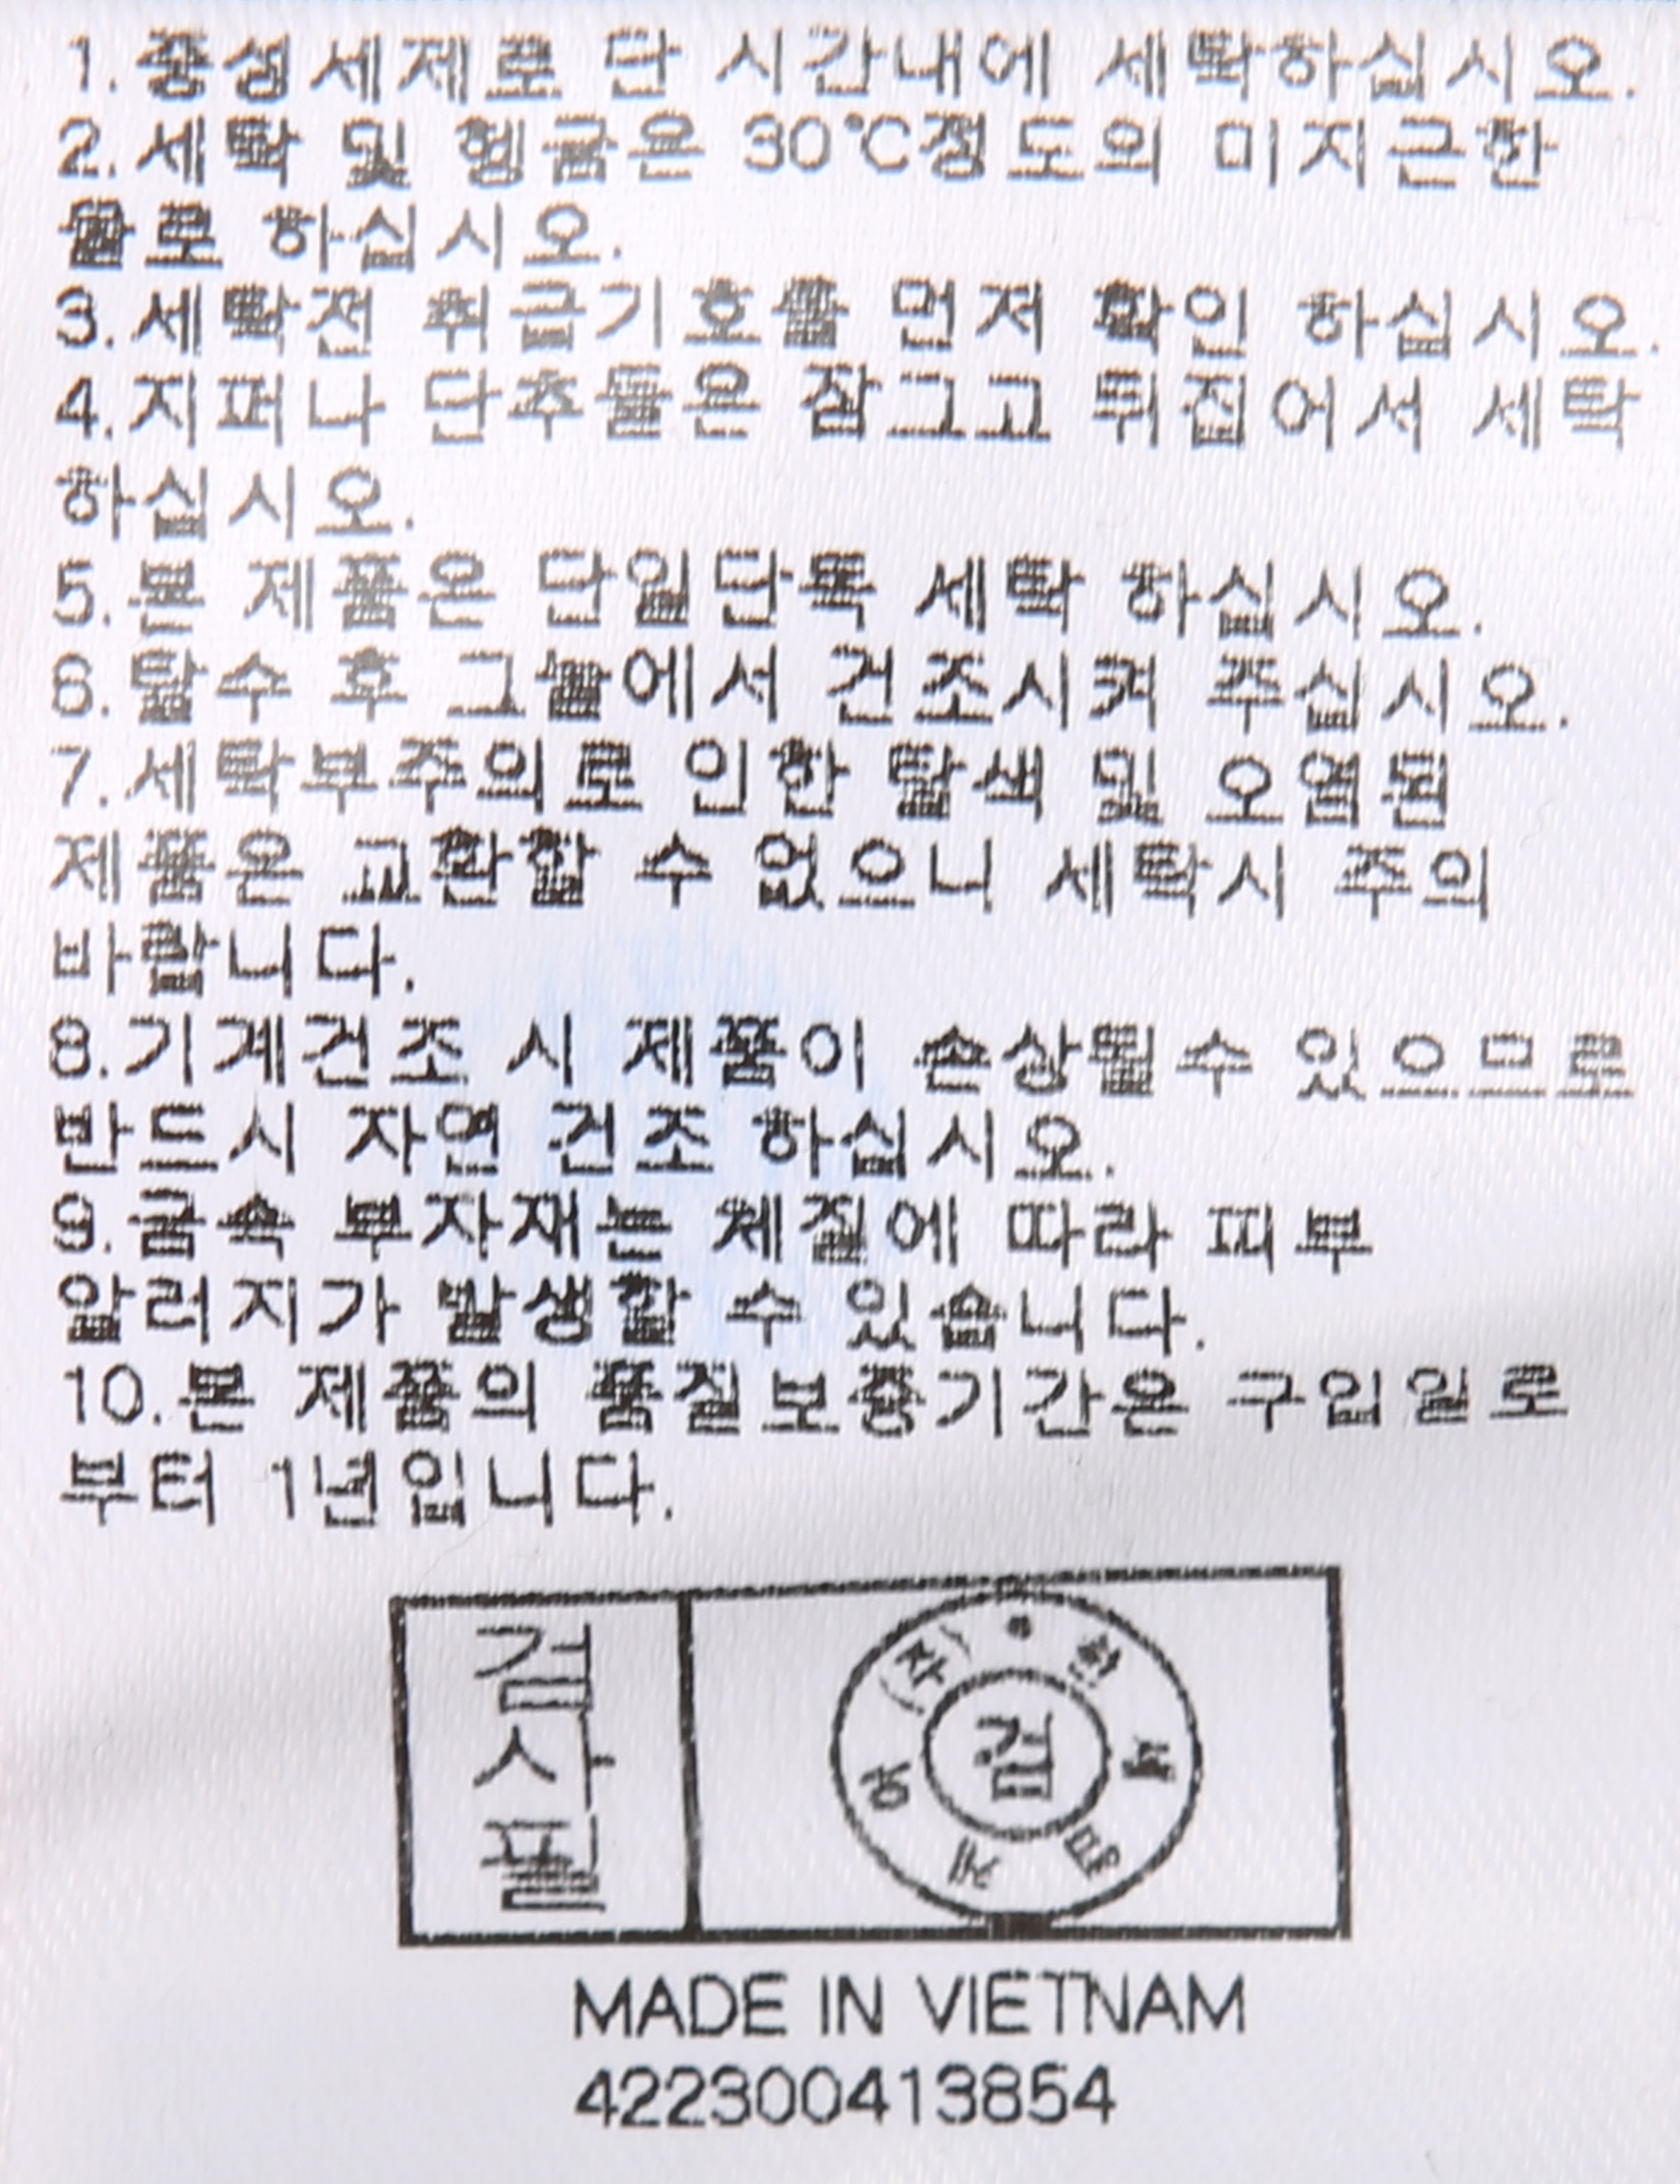 1.중성세제로 단 시간내에 세탁하십시오.
2.세탁 및 헹굼은 30℃정도의 미지근한
물로 하십시오.
3.세탁전 취급기호를 먼저 확인 하십시오.
4.지퍼나 단추들은 잠그고 뒤집어서 세탁
하십시오.
5.본 제품은 단일단독 세탁 하십시오.
6.탈수 후 그늘에서 건조시켜 주십시오.
7.세탁부주의로 인한 탈색 및 오염된
제품은 교환할 수 없으니 세탁시 주의
바랍니다.
8.기계건조 시 제품이 손상될수 있으므로
반드시 자연 건조 하십시오.
9.금속 부자재는 체질에 따라 피부
알러지가 발생할 수 있습니다.
10.본 제품의 품질보증기간은 구입일로
부터 1년입니다.
검사필
검
MADE IN VIETNAM
422300413854